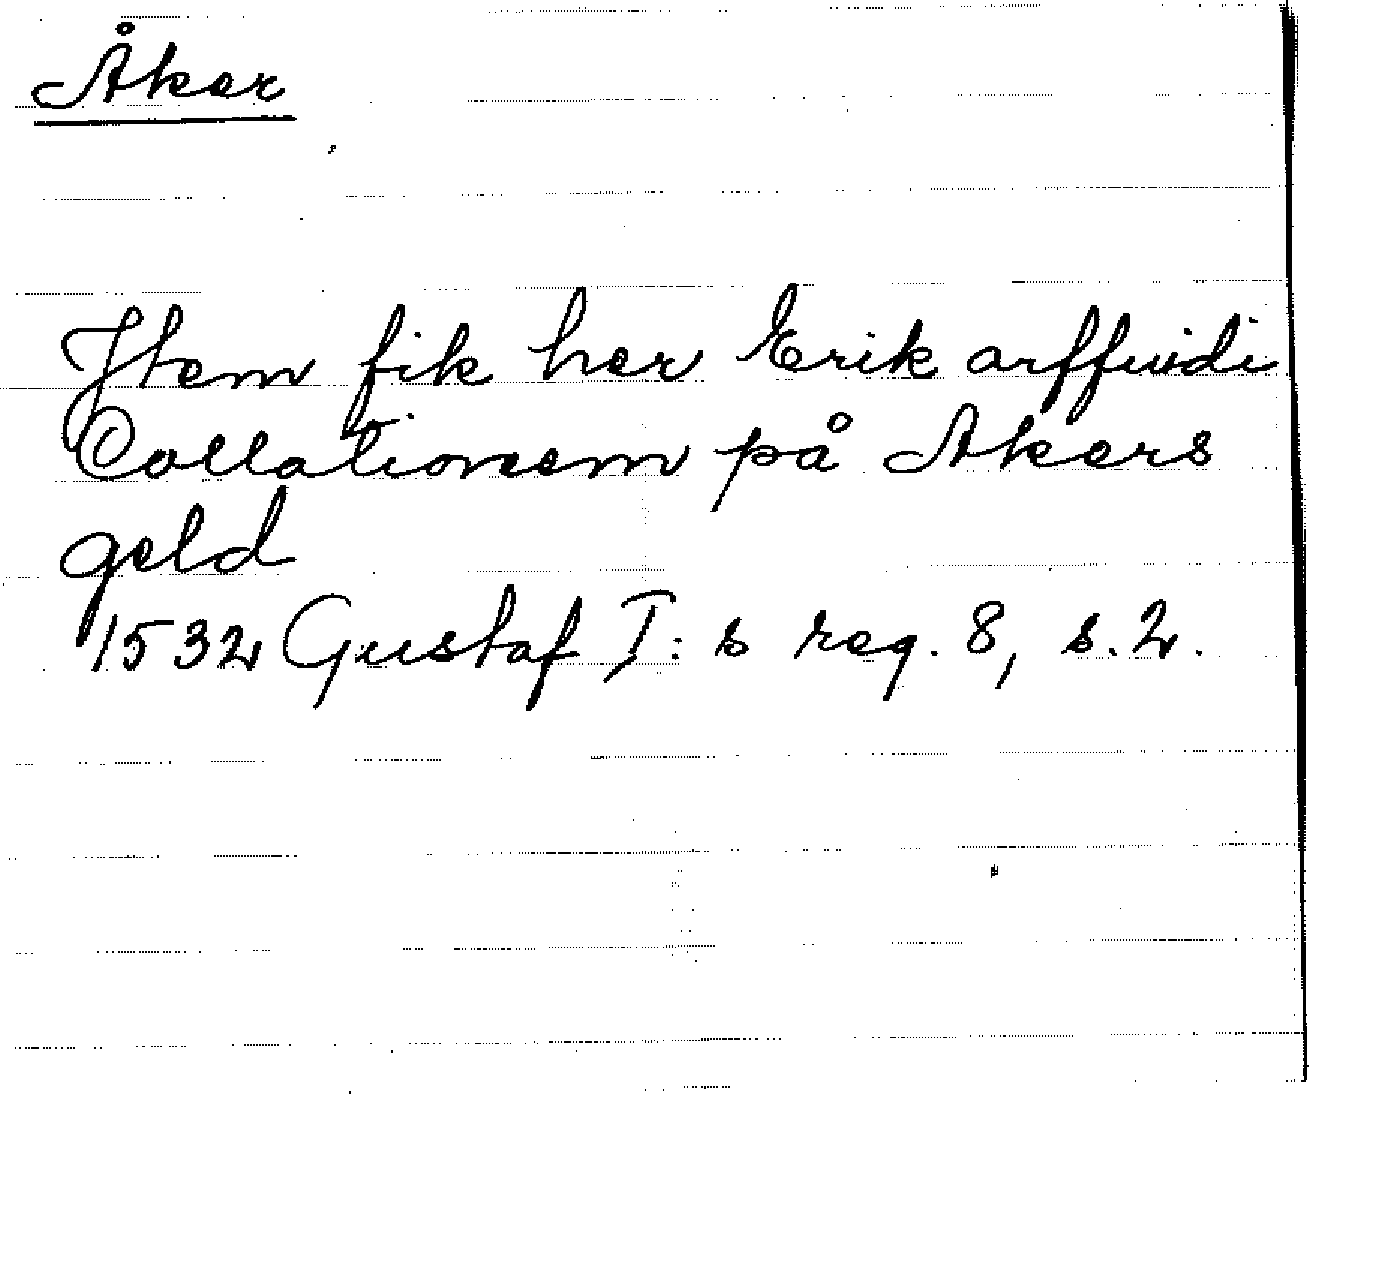 Åker
Item fik her Erik arffuidi
Collationem på Akers
geld
1532 Gustaf I:s reg. 8, s. 2.